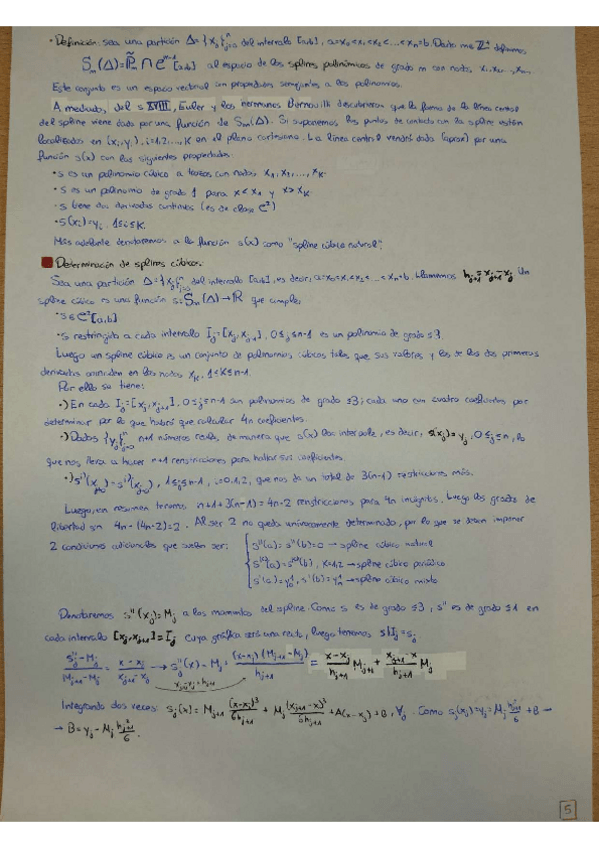 ·Definición: sea una partición Δ={x_j}_{j=0}^n del intervalo [a,b], a=x₀<x₁<x₂<...<xₙ=b. Dado m∈ℤ⁺ definimos
Sₘ(Δ)=P̃ₘ∩C^{m-1}[a,b] al espacio de los splines polinómicos de grado m con nodos x₁,x₂,...,xₙ.
Este conjunto es un espacio vectorial con propiedades semejantes a los polinomios.
A mediados del s XVIII, Euler y los hermanos Bernouilli descubrieron que la forma de la línea central
del spline viene dada por una función de Sₘ(Δ). Si suponemos los puntos de contacto con la spline están
localizados en (xᵢ,yᵢ), i=1,2,...,K en el plano cartesiano. La línea central vendrá dada (aprox) por una
función s(x) con las siguientes propiedades:
·s es un polinomio cúbico a trozos con nodos x₁,x₂,...,x_K.
·s es un polinomio de grado 1 para x<x₁ y x>x_K.
·s tiene dos derivadas continuas (es de clase C²)
·s(xᵢ)=yᵢ, 1≤i≤K.
Más adelante denotaremos a la función s(x) como "spline cúbico natural".
Determinación de splines cúbicos:
Sea una partición Δ={x_j}_{j=0}^n del intervalo [a,b], es decir, a=x₀<x₁<x₂<...<xₙ=b. Llamemos h_{j+1}=x_{j+1}-x_j. Un
spline cúbico es una función s:Sₘ(Δ)→ℝ que cumple:
·s∈C²[a,b]
·s restringida a cada intervalo I_j=[x_j,x_{j+1}], 0≤j≤n-1 es un polinomio de grado ≤3.
Luego un spline cúbico es un conjunto de polinomios cúbicos tales que sus valores y los de los dos primeros
derivadas coinciden en los nodos x_K, 1<K≤n-1.
Por ello se tiene:
·) En cada I_j=[x_j,x_{j+1}], 0≤j≤n-1 son polinomios de grado ≤3; cada uno con cuatro coeficientes por
determinar por lo que habrá que calcular 4n coeficientes.
·) Dados {y_j}_{j=0}^n n+1 números reales, de manera que s(x) los interpole, es decir, s(x_j)=y_j, 0≤j≤n, lo
que nos lleva a hacer n+1 restricciones para hallar sus coeficientes.
·) s^{i)}(x_{j+0})=s^{i)}(x_{j-0}), 1≤j≤n-1, i=0,1,2, que nos da un total de 3(n-1) restricciones más.
Luego, en resumen tenemos n+1+3(n-1)=4n-2 renstricciones para 4n incógnitas. Luego los grados de
libertad son 4n-(4n-2)=2. Al ser 2 no queda unívocamente determinado, por lo que se deben imponer
2 condiciones adicionales que suelen ser: { s''(a)=s''(b)=0 → spline cúbico natural
s^{K)}(a)=s^{K)}(b), K=1,2 → spline cúbico periódico
s'(a)=y₀', s'(b)=yₙ' → spline cúbico mixto
Denotaremos s''(x_j)=M_j a los momentos del spline. Como s es de grado ≤3, s'' es de grado ≤1 en
cada intervalo [x_j,x_{j+1}]=I_j cuya gráfica será una recta, luego tenemos s|I_j=s_j
(s_j''-M_j)/(M_{j+1}-M_j) = (x-x_j)/(x_{j+1}-x_j) → s_j''(x)-M_j = (x-x_j)(M_{j+1}-M_j)/h_{j+1} = (x-x_j)/h_{j+1} M_{j+1} + (x_{j+1}-x)/h_{j+1} M_j
x_{j+1}-x_j=h_{j+1}
Integrando dos veces: s_j(x)=M_{j+1} (x-x_j)³/6h_{j+1} + M_j (x_{j+1}-x)³/6h_{j+1} + A(x-x_j)+B, ∀j. Como s_j(x_j)=y_j=M_j h²_{j+1}/6 + B →
→ B=y_j-M_j h²_{j+1}/6.
5